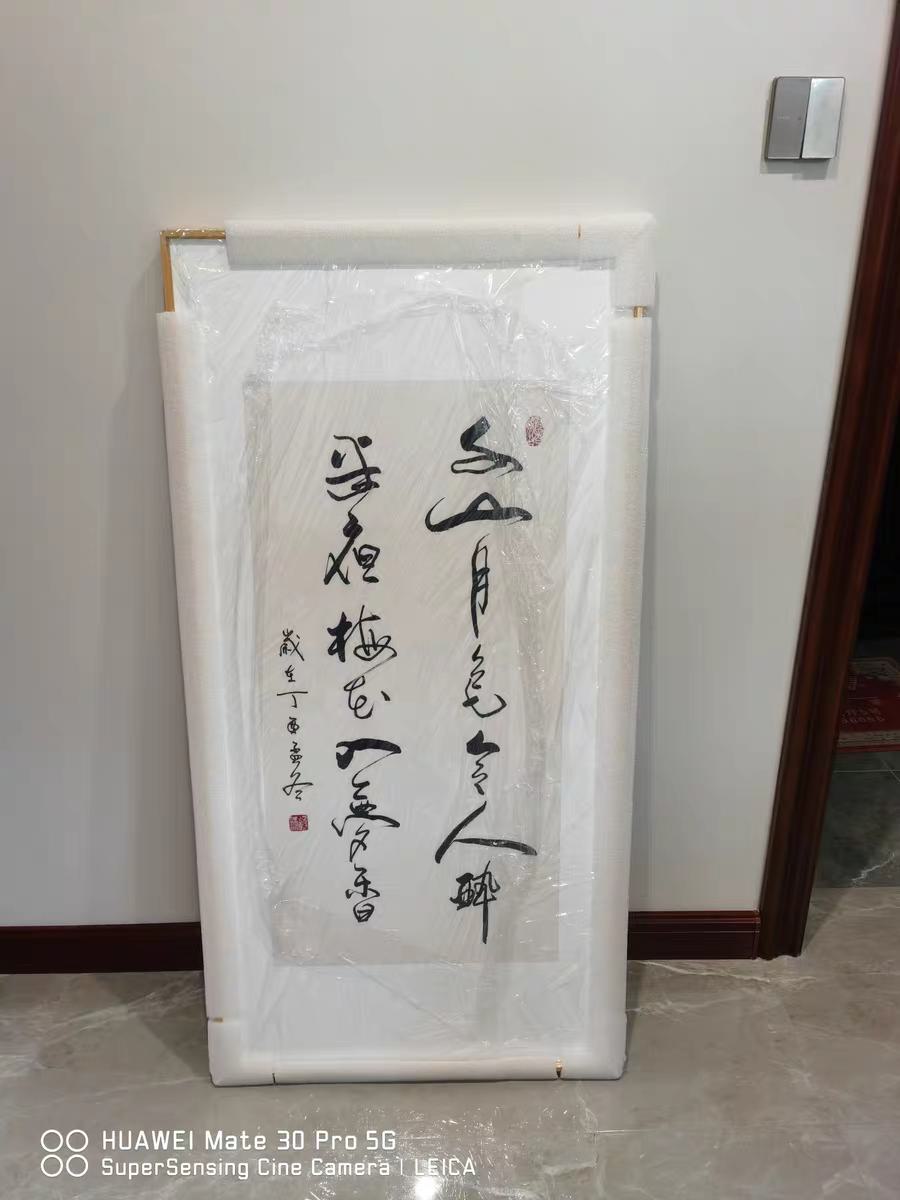 山月色令人醉
半夜梅花入夢香
歲在丁酉孟冬
HUAWEI Mate 30 Pro 5G
SuperSensing Cine Camera | LEICA